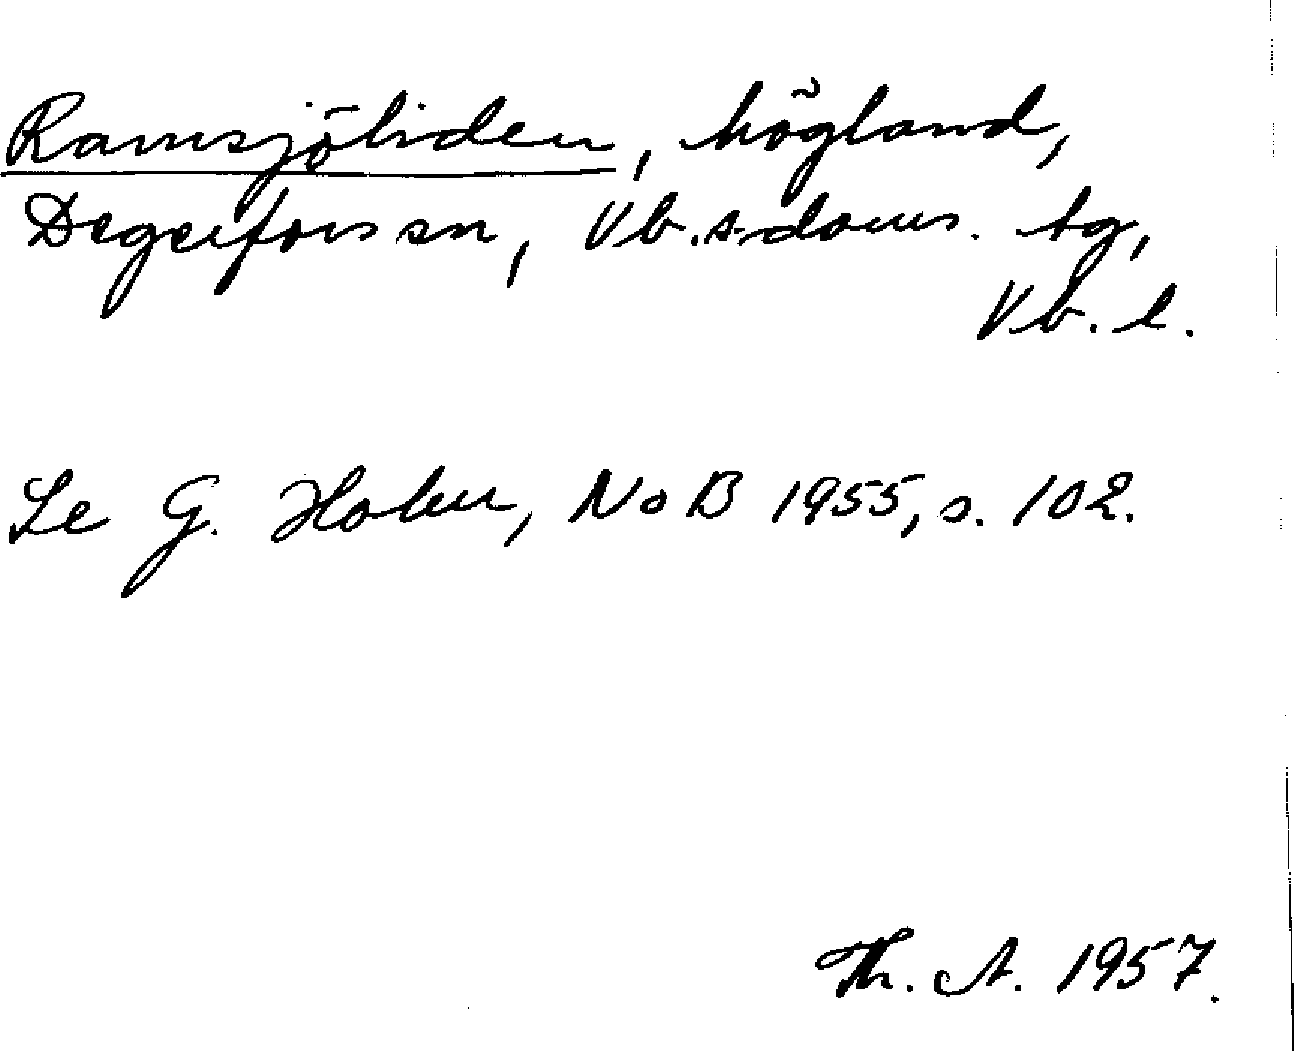 Ramsjöliden, högland,
Degerfors sn, Vb. s. doms. tg,
Vb. l.
Se G. Holm, NoB 1955, s. 102.
Th. A. 1957.